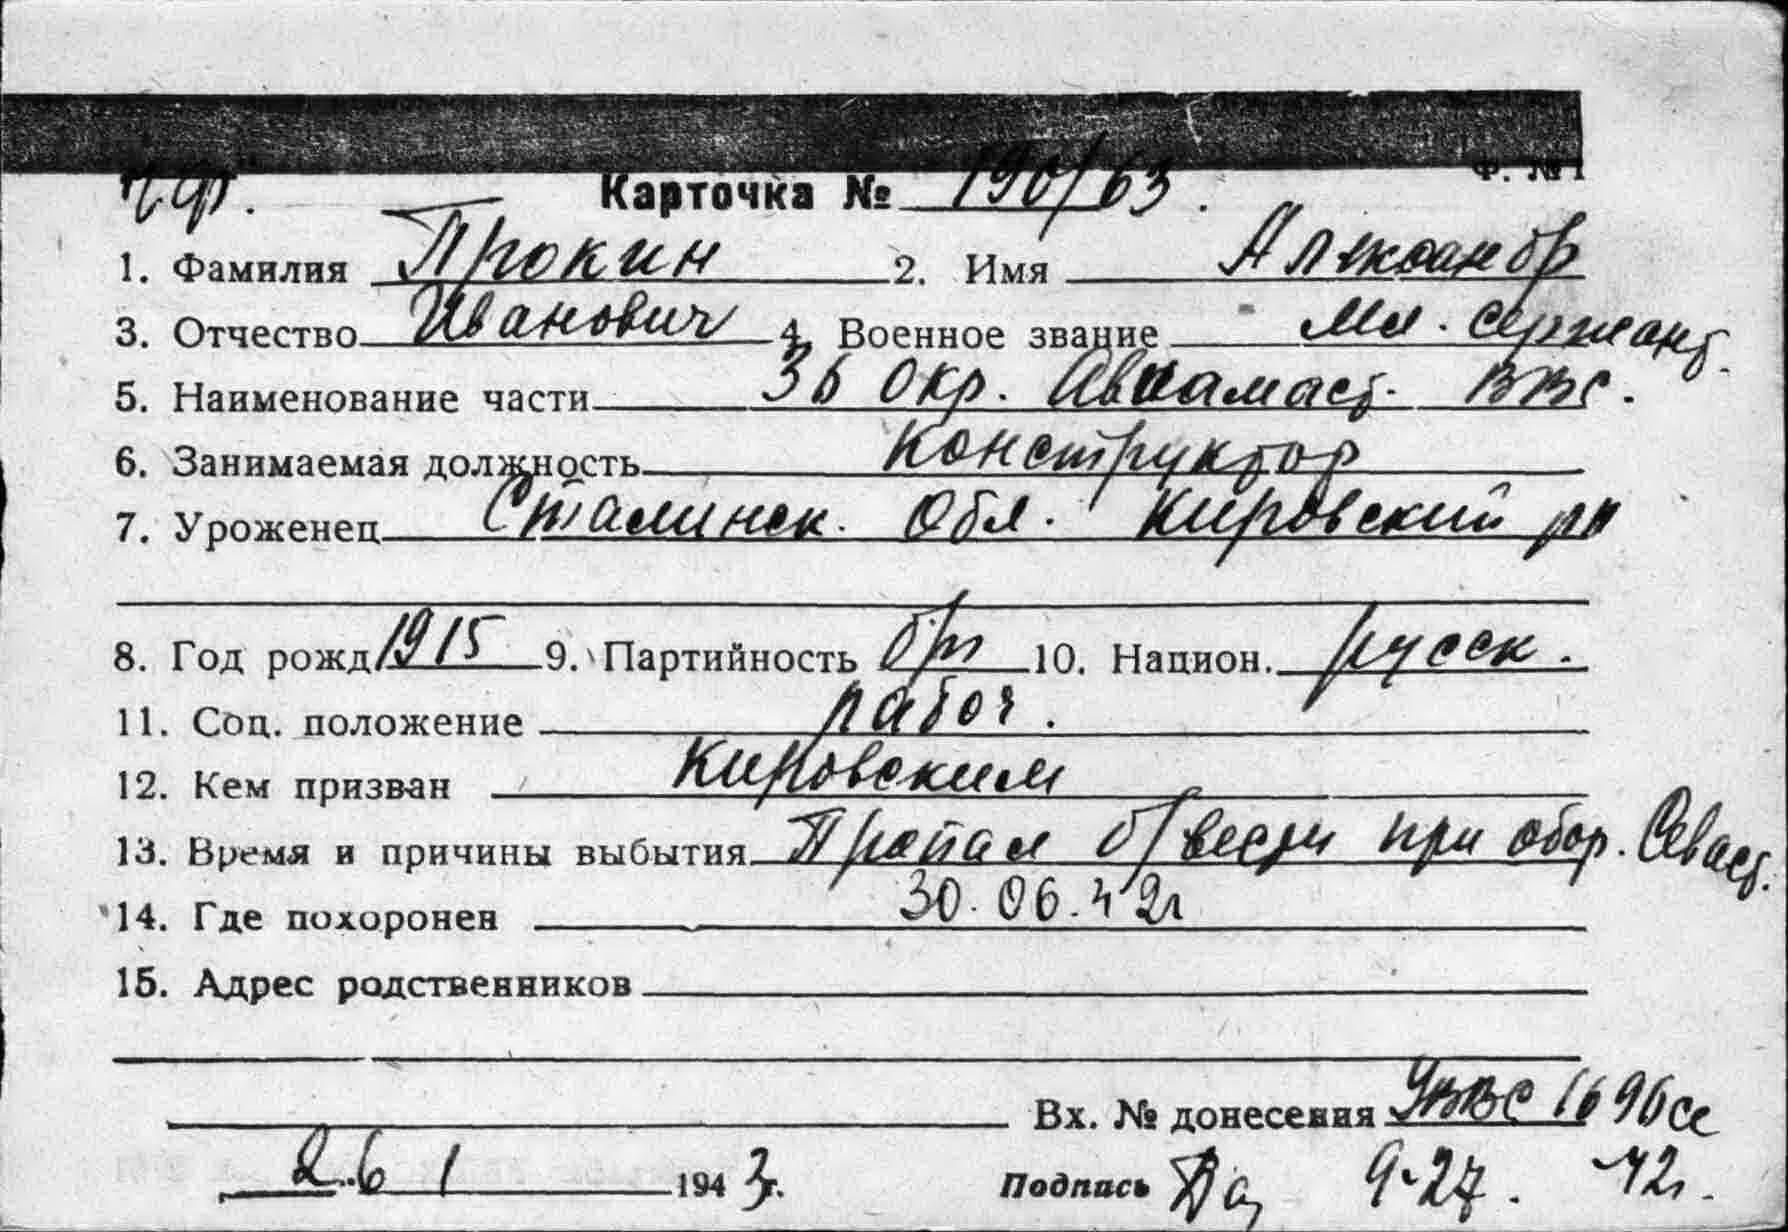 Ф. №1
ч.ф. Карточка № 190/63.
1. Фамилия Прокин 2. Имя Александр
3. Отчество Иванович 4. Военное звание Мл. сержант.
5. Наименование части 36 Окр. Авиамаст. ВВС.
6. Занимаемая должность Конструктор
7. Уроженец Сталинск. Обл. Кировский рн
8. Год рожд 1915 9. Партийность б/п 10. Национ. русск.
11. Соц. положение рабоч.
12. Кем призван Кировским
13. Время и причины выбытия Пропал б/вести при обор. Севаст.
14. Где похоронен 30.06.42г
15. Адрес родственников
Вх. № донесения УВВС 1696сс
26 1 1943г. Подпись 9-27. -42г.